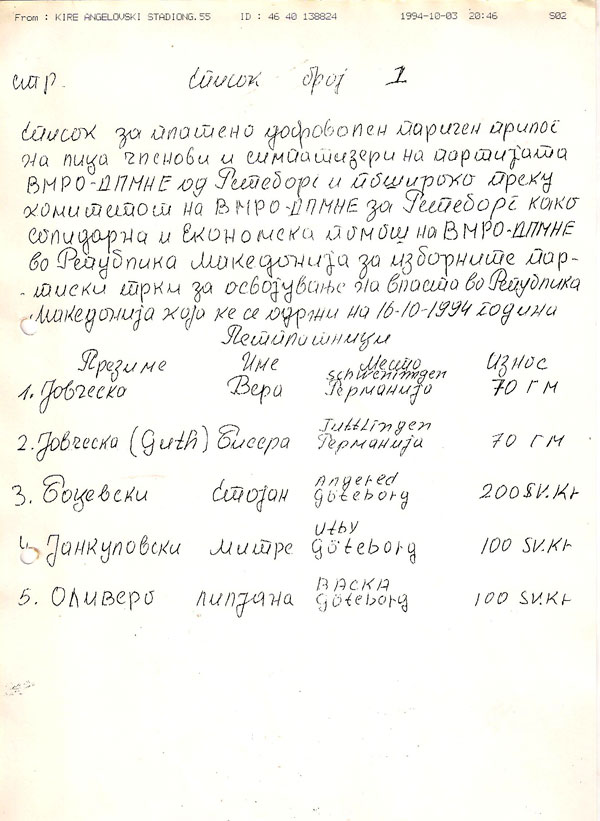 From : KIRE ANGELOVSKI STADIONG.55 ID : 46 40 138824 1994-10-03 20:46 S02
стр. Список број 1
Список за платено доброволен паричен прилог
на лица членови и симпатизери на партијата
ВМРО-ДПМНЕ од Гетеборг и пошироко преку
комитетот на ВМРО-ДПМНЕ за Гетеборг како
солидарна и Економска помош на ВМРО-ДПМНЕ
во Република Македонија за изборните пар-
тиски трки за освојување на власта во Република
Македонија која ке се одржи на 16-10-1994 година
Презиме Име Место Износ
schwenningen
1. Јовческа Вера Германија 70 ГМ
Tuttlingen
2. Јовческа (Guth) Бисера Германија 70 ГМ
Angered
3. Боцевски Стојан Göteborg 200 SV.Kr
Utby
4. Јанкуловски Митре Göteborg 100 SV.Kr
BACKA
5. Оливеро Лилјана Göteborg 100 SV.Kr